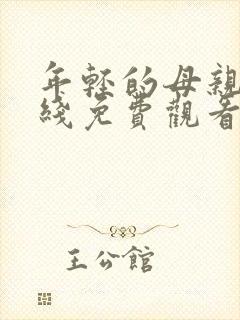 年轻的母親
綫免費觀看
王公館